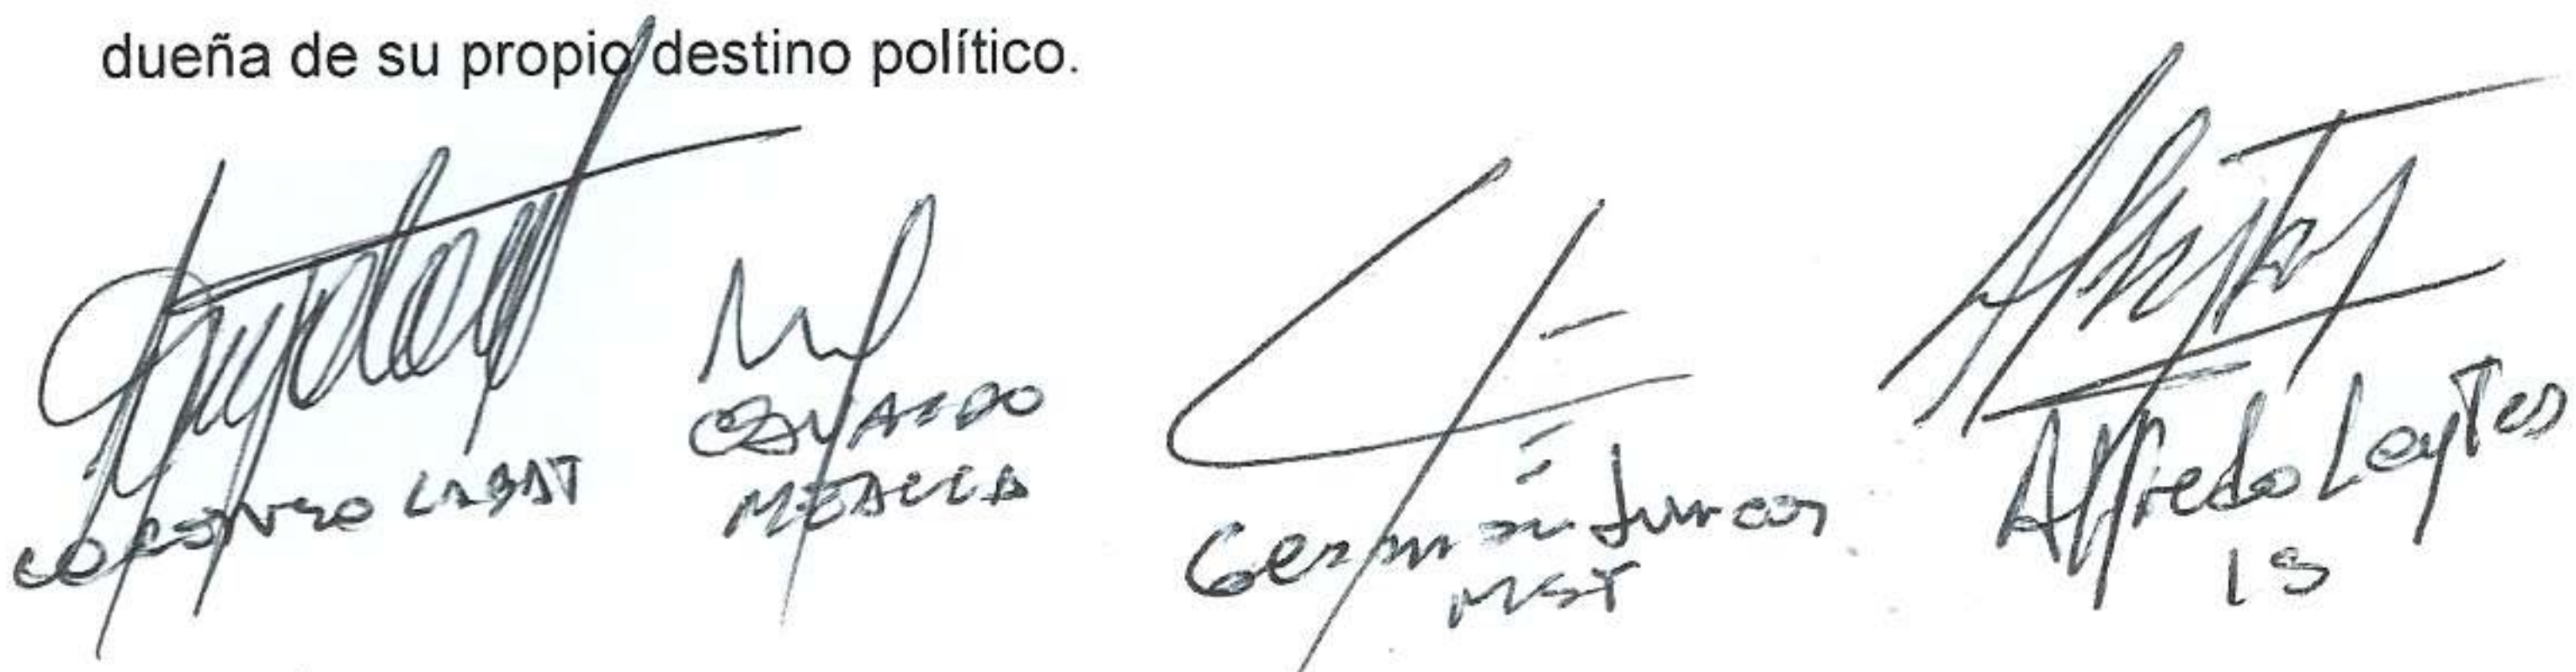 dueña de su propio destino político.
LABAT
OSVALDO
MEALLA
Germán Juncos
MST
Alfredo Leytes
IS